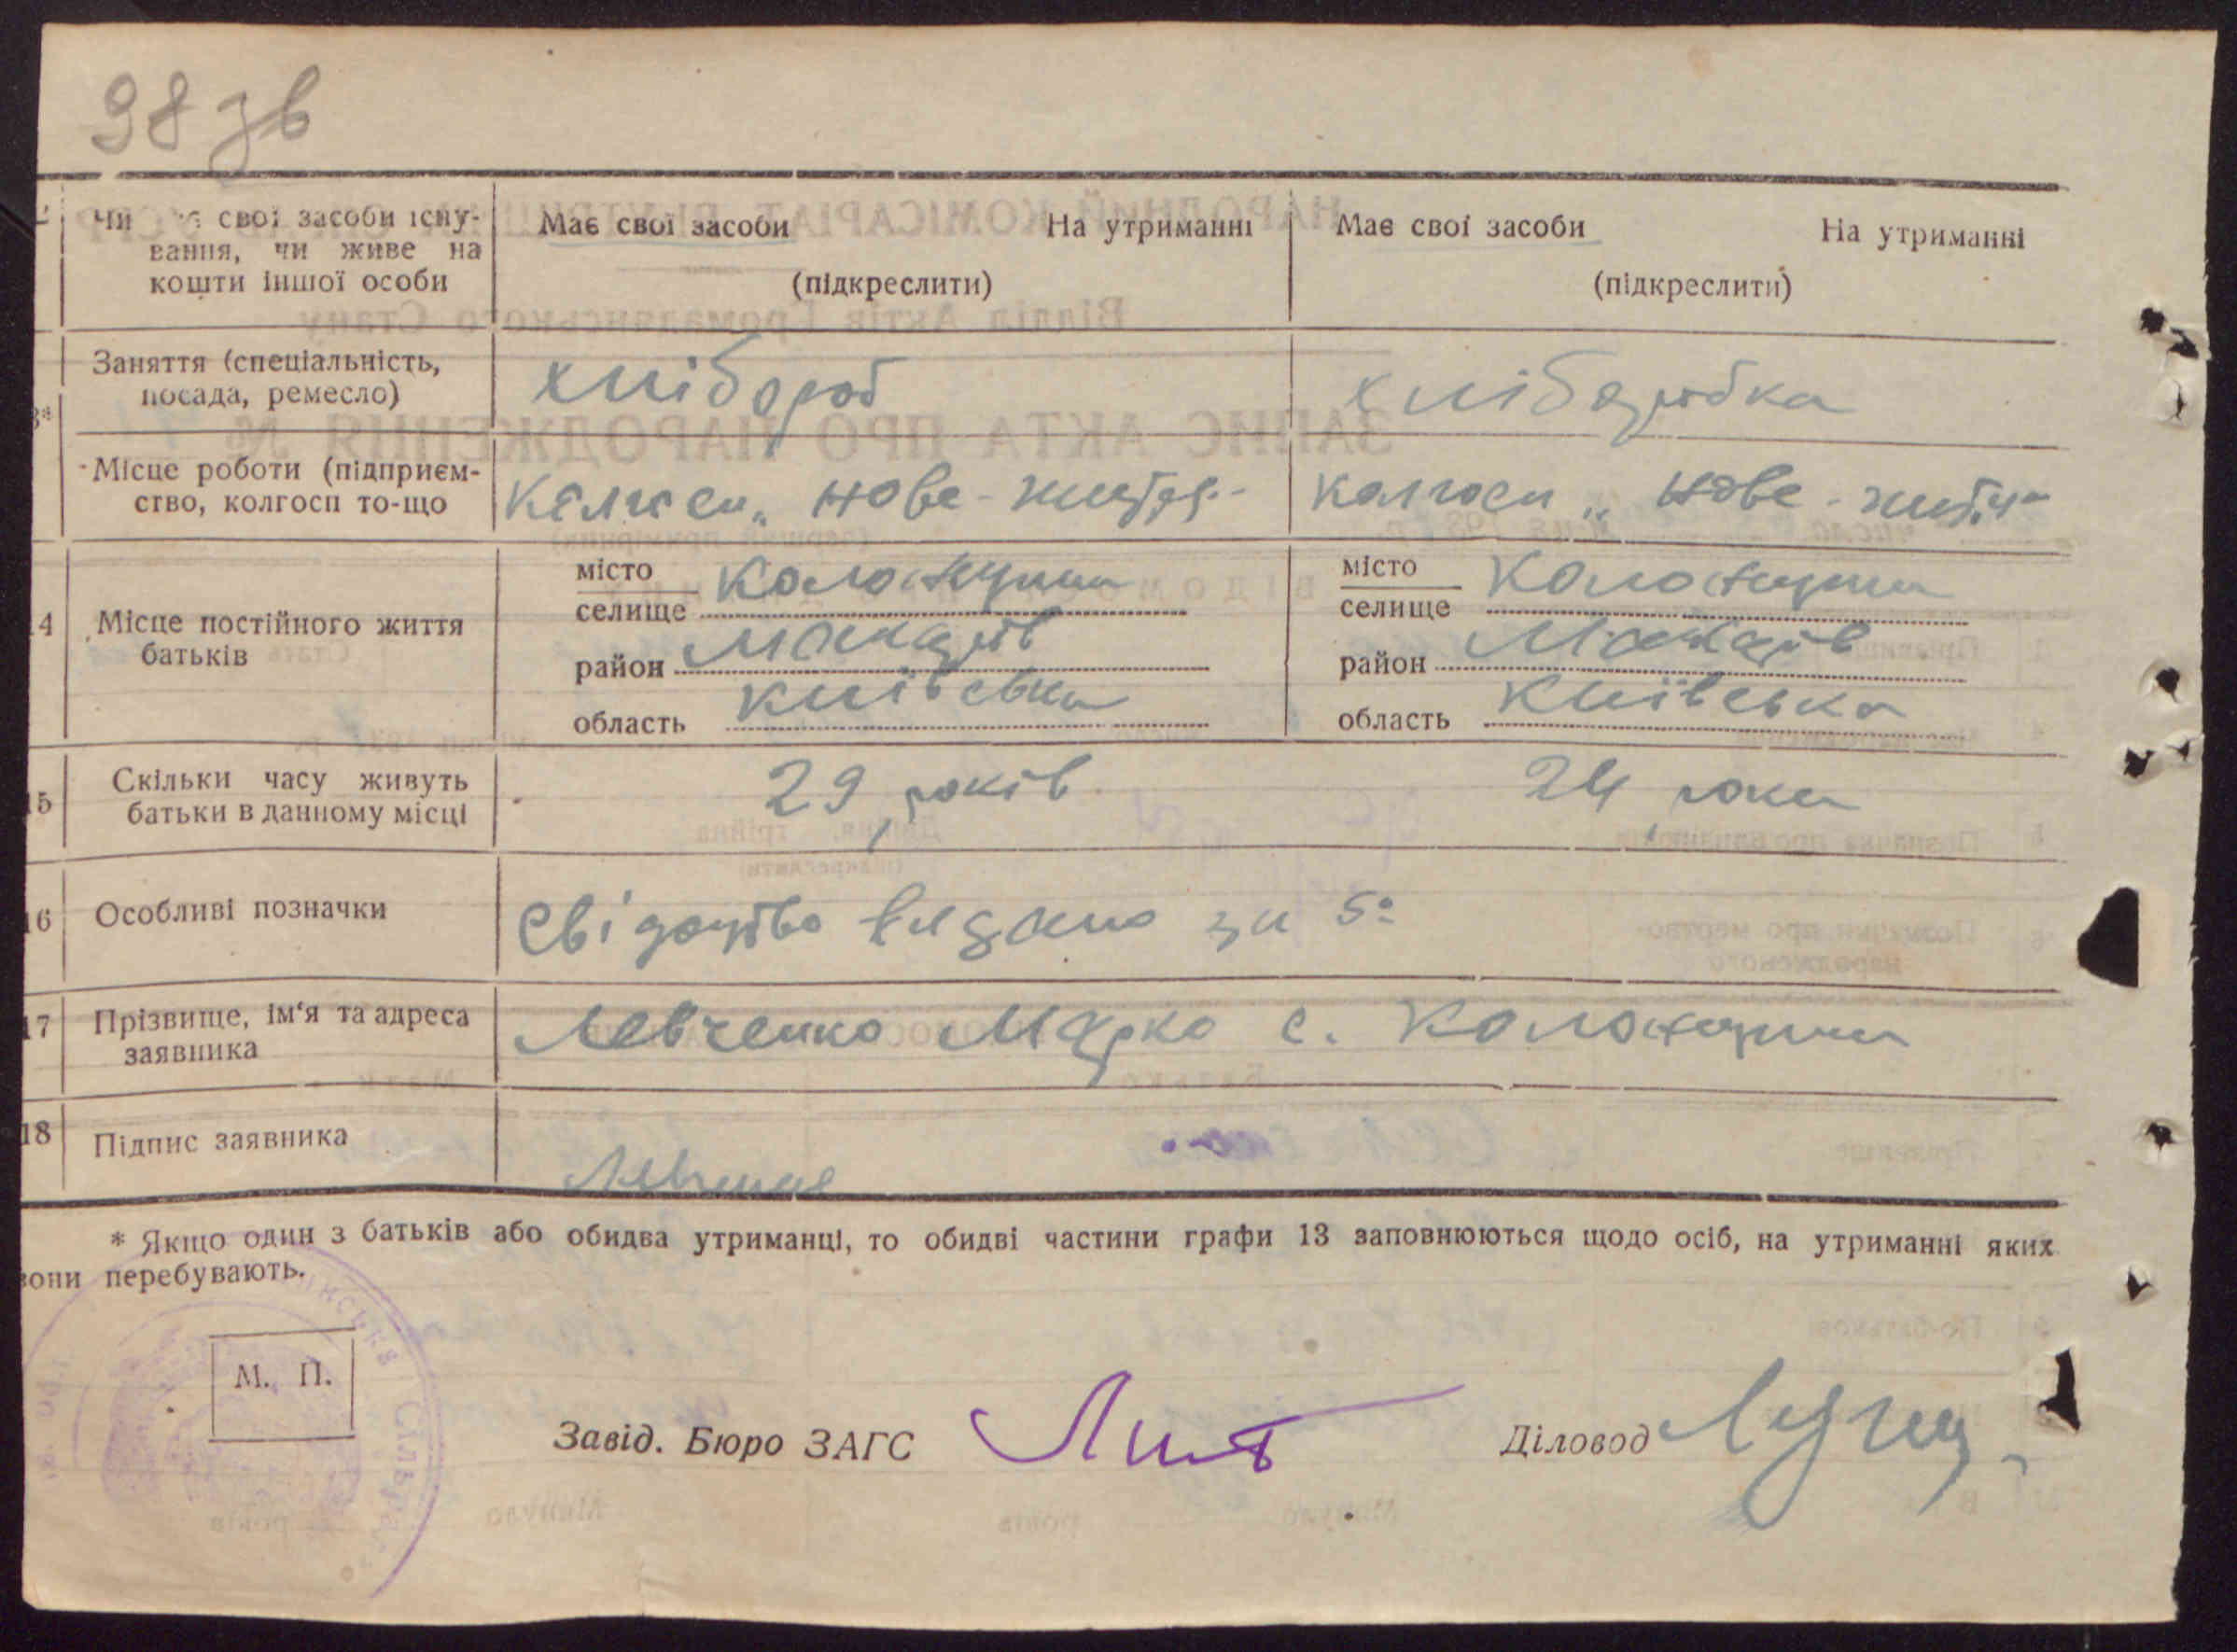 98 зв
Чи свої засоби існу- Має свої засоби На утриманні Має свої засоби На утриманні
вання, чи живе на
кошти іншої особи (підкреслити) (підкреслити)
Заняття (спеціальність, хлібороб хліборобка
посада, ремесло)
3*
Місце роботи (підприєм- Колгосп „ Нове-життя- колгосп „ Нове-життя
ство, колгосп то-що
місто Колонщина місто Колонщина
селище селище
14 Місце постійного життя
батьків
район Макарів район Макарів
область київська область Київська
15 Скільки часу живуть 29 років 24 роки
батьки в данному місці
16 Особливі позначки Свідоцтво видано за 5:
17 Прізвище, ім'я та адреса Левченко Марко с. Колонщина
заявника
18 Підпис заявника
* Якщо один з батьків або обидва утриманці, то обидві частини графи 13 заповнюються щодо осіб, на утриманні яких
вони перебувають.
М. П.
Завід. Бюро ЗАГС Діловод